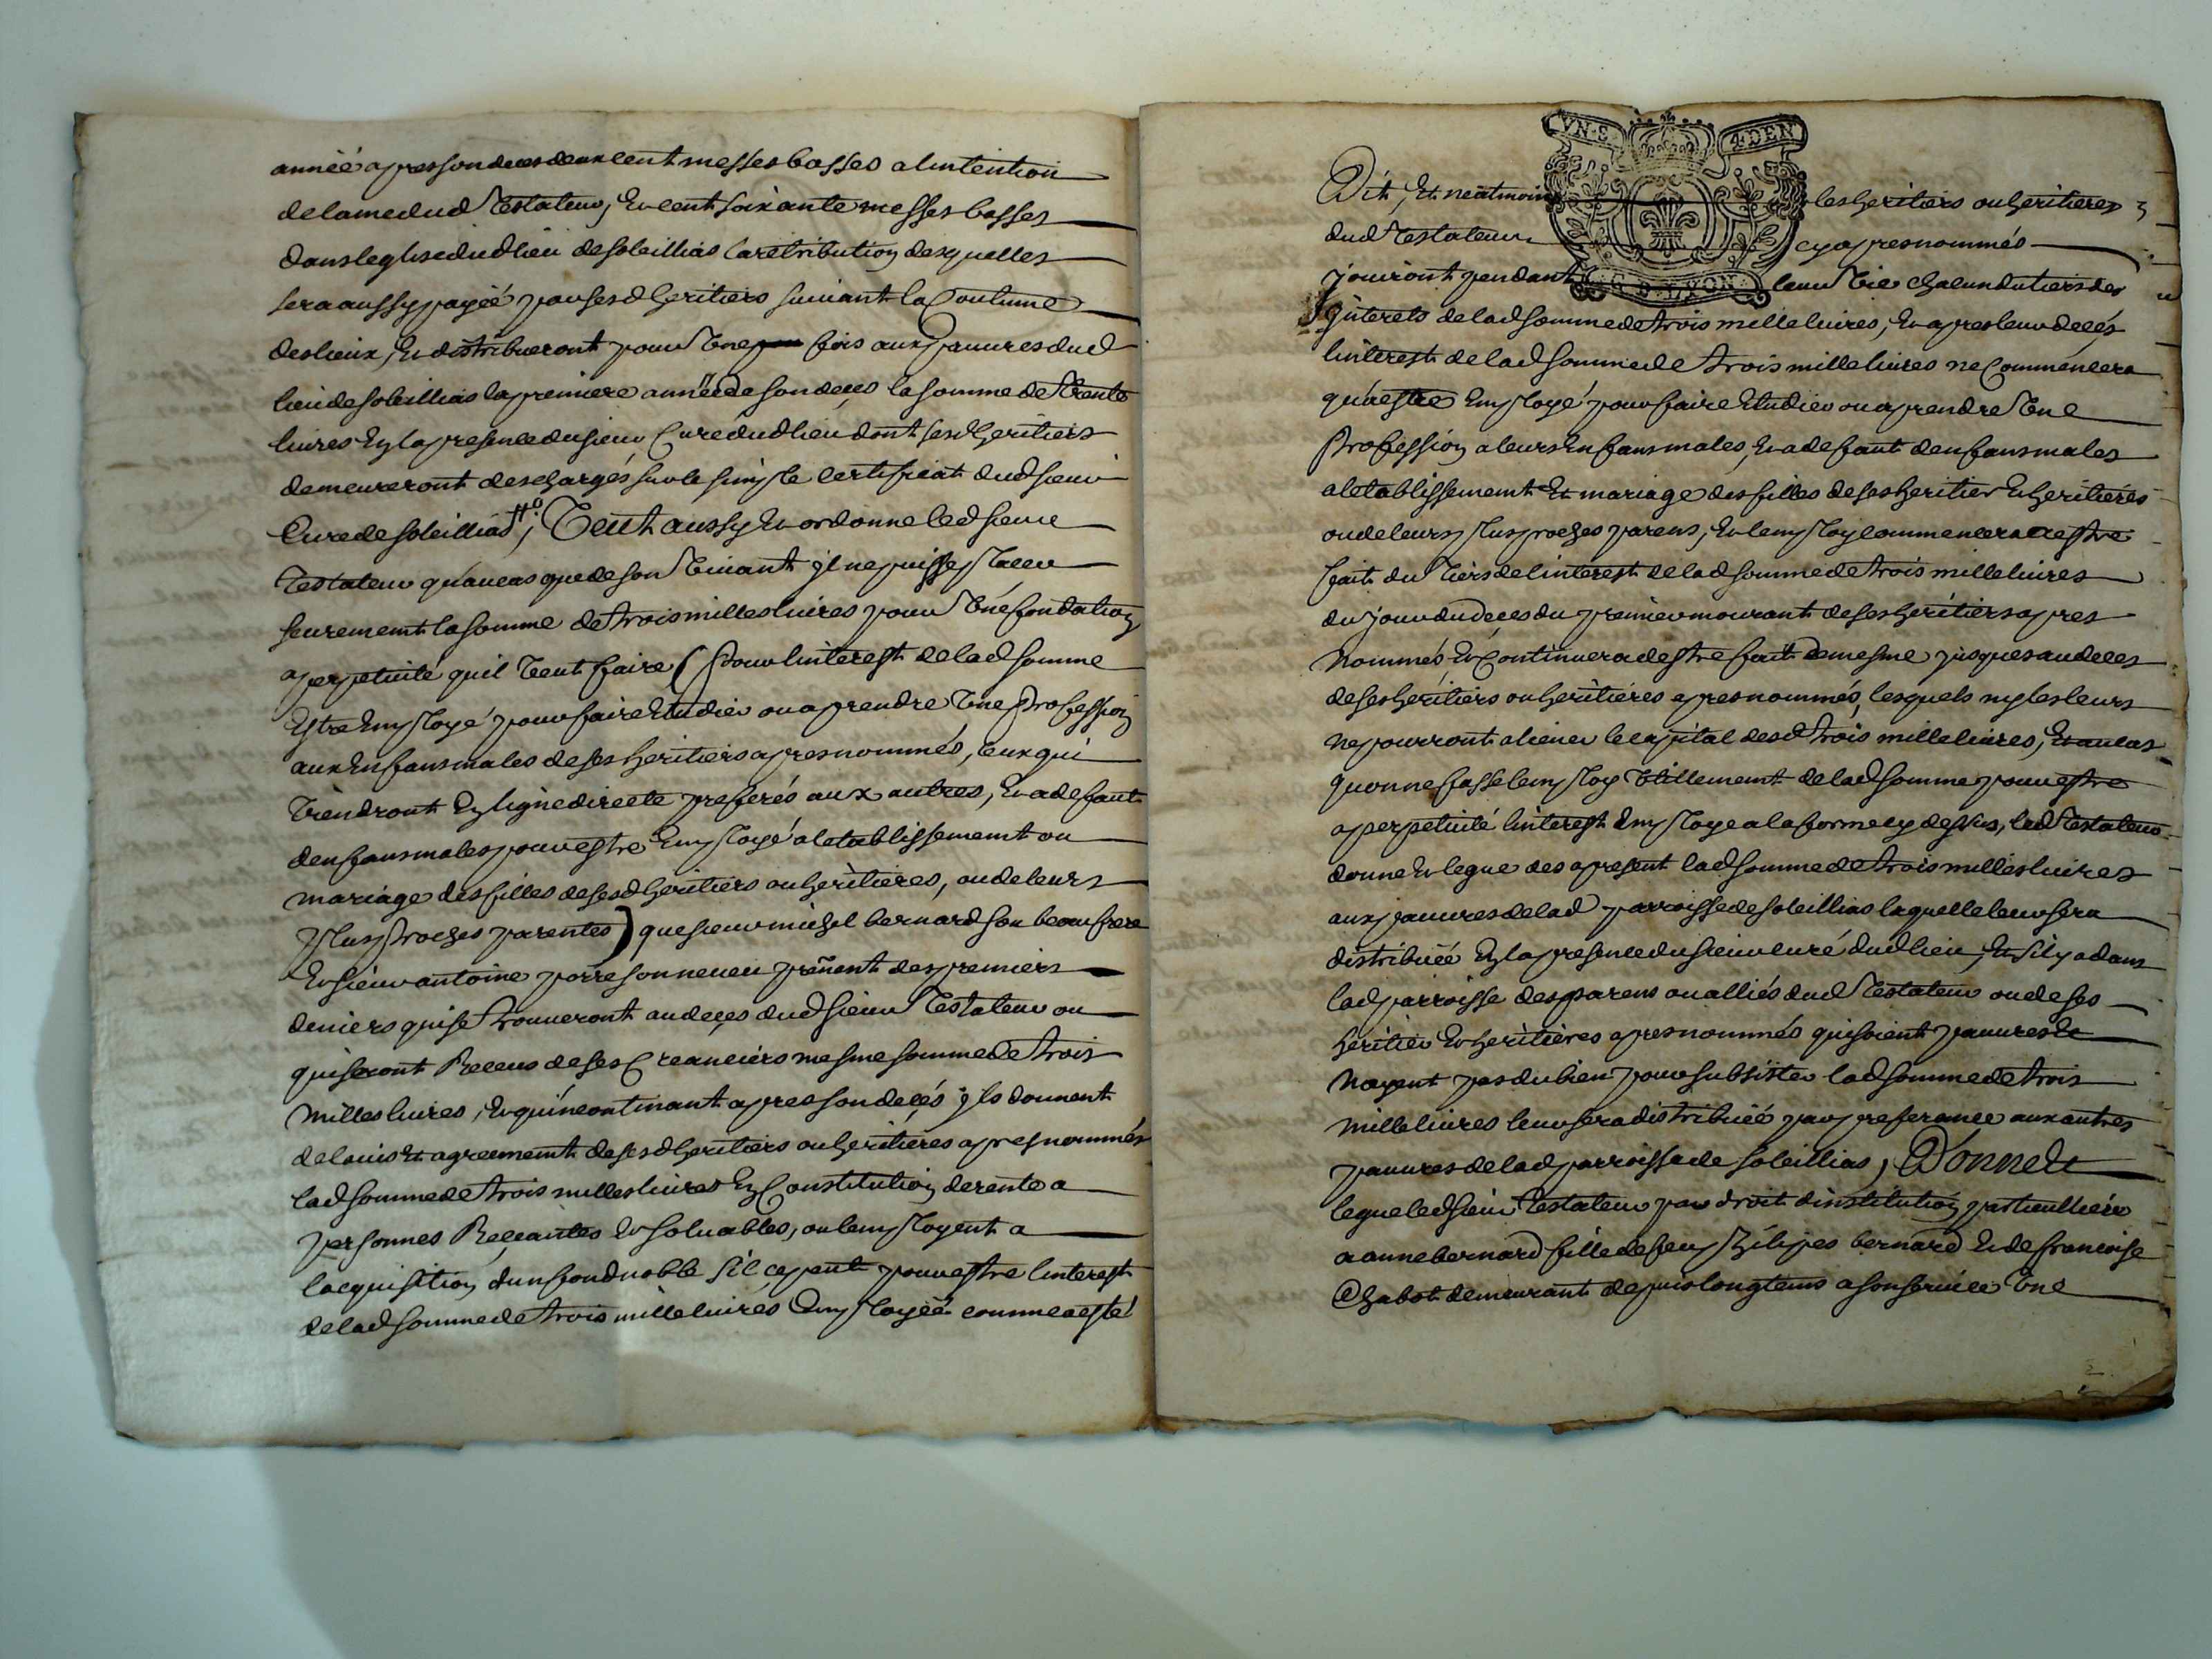 année apres son deces deux cent messes basses a lintention
de lame dud Testateur, Et cent soixante messes basses
dans leglise dud lieu de soleillias la retribution desquelles
sera aussy payéé par sesd heritiers suivant la Coutume
des lieux, Et distribueront pour Une fois aux pauvres dud
lieu de soleillias la premiere année de son deces la somme de Trente
livres En la presence du sieur Curé dud lieu dont sesd heritiers
demeureront deschargés sur le simple certificat dud sieur
Curé de soleillias, Veut aussy Et ordonne led sieur
Testateur qu'au cas que de son Vivant jl ne puisse placer
seurement la somme de trois milles livres pour Une fondation
a perpetuité quil Veut faire (Pour linterest de lad somme
Estre Employé pour faire Etudier ou aprendre Une Profession
aux Enfans males de ses heritiers apres nommés, Ceux qui
Viendront En ligne directe preferés aux autres, Et a defaut
denfans males pour estre Employé a letablissement ou
mariage des filles de sesd heritiers ou heritieres, ou de leurs
Plus Proches parentes) que sieur michel bernard son beau frere
Et sieur antoine porre son neveu prenent des premiers
deniers qui se trouveront au deces dud sieur Testateur ou
qui seront Receus de ses Creanciers mesme somme de trois
milles livres, Et qu'incontinant apres son deces jls donnent
de lavis Et agreement de sesd heritiers ou heritieres apres nommés
lad somme de trois milles livres En Constitution de rente a
personnes Rescantes Et solvables, ou lemployent a
lacquisition dun fond noble sil ce peut pour estre linterest
de lad somme de trois mille livres Employéé comme a esté
VN·S· 4·DEN
Dit, Et neatmoins les heritiers ou heritieres
dud Testateur cy apres nommés
G·D·LYON
jouiront pendant leur Vie chacun du tiers des
jnterets de lad somme de trois mille livres, Et apres leur decés
linterest de lad somme de trois mille livres ne Commencera
qu'a estre Employé pour faire Etudier ou aprendre Une
Profession a leurs Enfans males, Et a defaut denfans males
a letablissement Et mariage des filles de ses heritier Et heritieres
ou de leurs plus proches parens, Et lemploy commencera a estre
fait du Tiers de linterest de lad somme de trois mille livres
du jour du deces du premier mourant de ses heritiers apres
Nommés Et Continuera destre fait de mesme jusques au deces
de ses heritiers ou heritiéres apres nommés, lesquels ny les leurs
ne pourront aliener le capital desd trois mille livres, Et au cas
quon ne fasse lemploy Utillement de lad somme pour estre
a perpetuité linterest Employe a la forme cy dessus, led Testateur
donne Et legue des apresent lad somme de trois milles livres
aux pauvres de lad parroisse de soleillias laquelle leur sera
distribuéé En la presence du sieur curé dud lieu, Et sil y a dans
lad parroisse des parens ou alliés dud Testateur ou de ses
heritier Et heritieres apres nommés qui soient pauvres Et
Nayent pas du bien pour subsister lad somme de trois
mille livres leur sera distribuéé par preferance aux autres
pauvres de lad parroisse de soleillias, Donne Et
legue led sieur Testateur par droit dinstitution particulliere
a anne bernard fille de feu philipes bernard Et de francoise
Chabot demeurant depuis longtems a son service Une